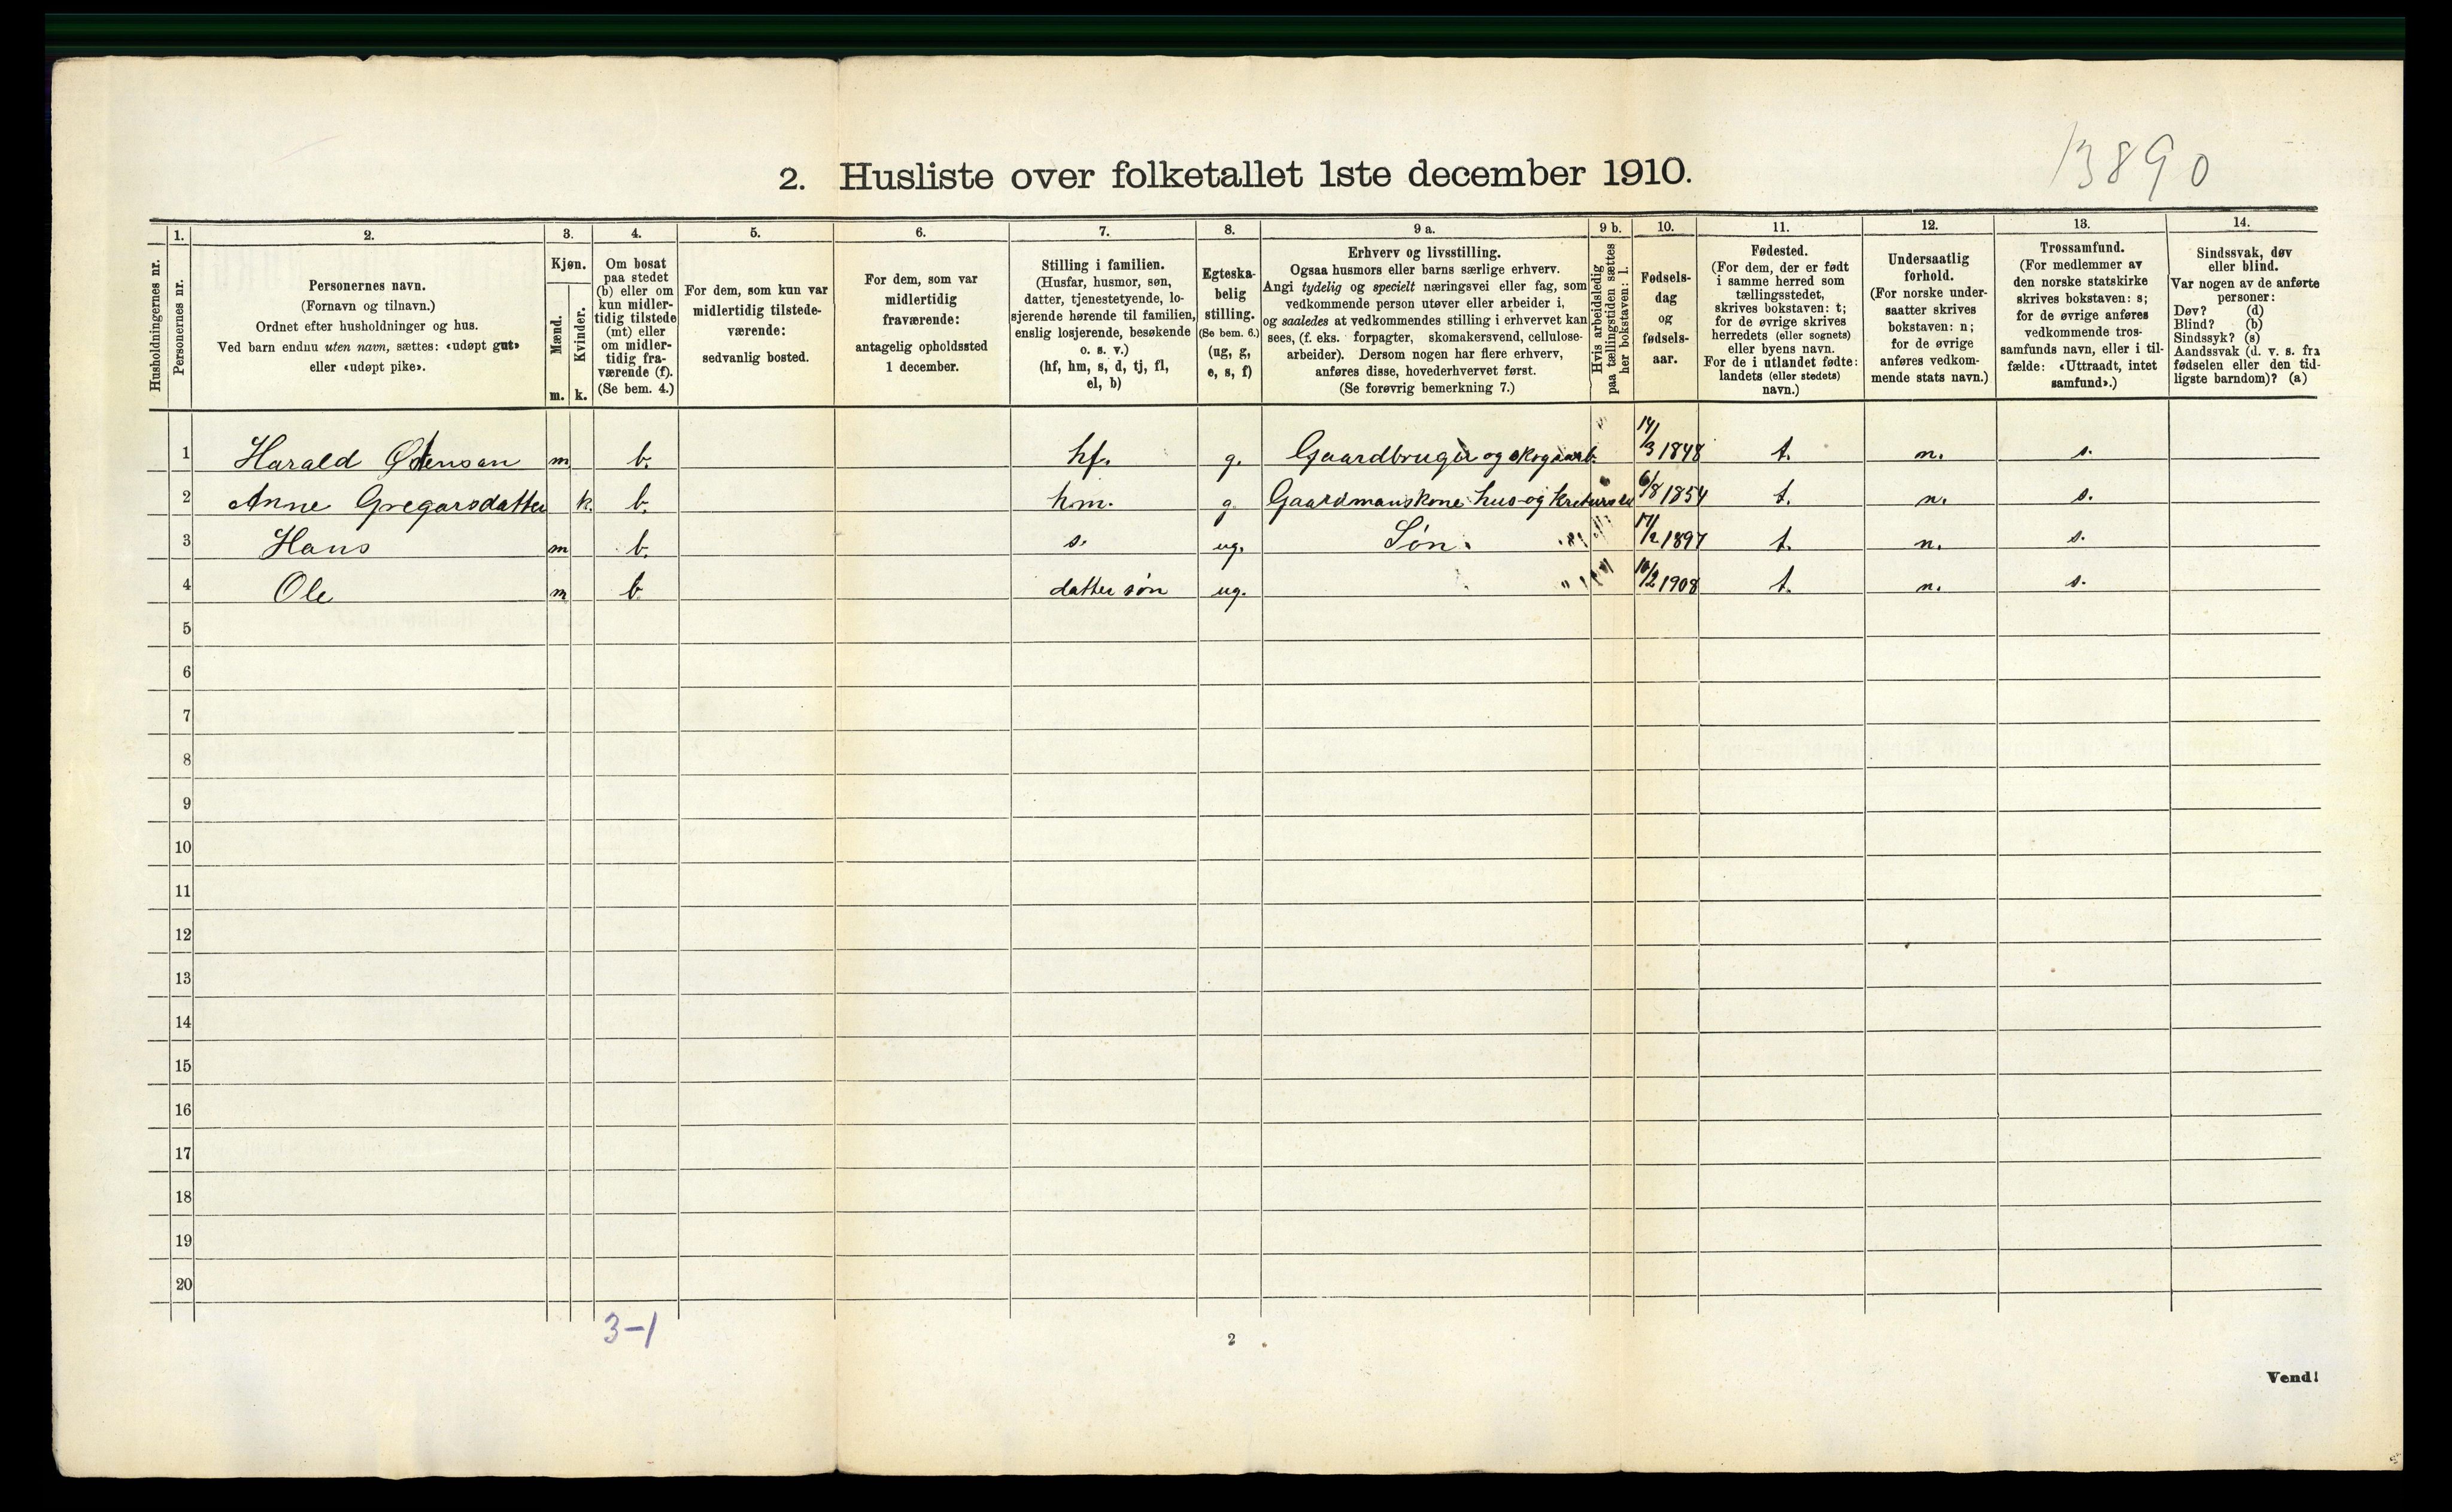 13890
2. Husliste over folketallet 1ste december 1910.
Husholdningernes nr.
1.
Personernes nr.
2.
Personernes navn.
(Fornavn og tilnavn.)
Ordnet efter husholdninger og hus.
Ved barn endnu uten navn, sættes: «udøpt gut»
eller «udøpt pike».
3.
Kjøn.
Mænd.
Kvinder.
m. k.
4.
Om bosat
paa stedet
(b) eller om
kun midler-
tidig tilstede
(mt) eller
om midler-
tidig fra-
værende (f).
(Se bem. 4.)
5.
For dem, som kun var
midlertidig tilstede-
værende:
sedvanlig bosted.
6.
For dem, som var
midlertidig
fraværende:
antagelig opholdssted
1 december.
7.
Stilling i familien.
(Husfar, husmor, søn,
datter, tjenestetyende, lo-
sjerende hørende til familien,
enslig losjerende, besøkende
o. s. v.)
(hf, hm, s, d, tj, fl,
el, b)
8.
Egteska-
belig
stilling.
(Se bem. 6.)
(ug, g,
e, s, f)
9 a.
Erhverv og livsstilling.
Ogsaa husmors eller barns særlige erhverv.
Angi tydelig og specielt næringsvei eller fag, som
vedkommende person utøver eller arbeider i,
og saaledes at vedkommendes stilling i erhvervet kan
sees, (f. eks. forpagter, skomakersvend, cellulose-
arbeider). Dersom nogen har flere erhverv,
anføres disse, hovederhvervet først.
(Se forøvrig bemerkning 7.)
9 b.
Hvis arbeidsledig
paa tællingstiden sættes
her bokstaven: l.
10.
Fødsels-
dag
og
fødsels-
aar.
11.
Fødested.
(For dem, der er født
i samme herred som
tællingsstedet,
skrives bokstaven: t;
for de øvrige skrives
herredets (eller sognets)
eller byens navn.
For de i utlandet fødte:
landets (eller stedets)
navn.)
12.
Undersaatlig
forhold.
(For norske under-
saatter skrives
bokstaven: n;
for de øvrige
anføres vedkom-
mende stats navn.)
13.
Trossamfund.
(For medlemmer av
den norske statskirke
skrives bokstaven: s;
for de øvrige anføres
vedkommende tros-
samfunds navn, eller i til-
fælde: «Uttraadt, intet
samfund».)
14.
Sindssvak, døv
eller blind.
Var nogen av de anførte
personer:
Døv? (d)
Blind? (b)
Sindssyk? (s)
Aandssvak (d. v. s. fra
fødselen eller den tid-
ligste barndom)? (a)
1 Harald m b. hf. g. Gaardbruger og skogsarb. 14/3 1848 t. n. s.
2 Anne Gregarsdatter k. b. hm. g. Gaardmanskone hus-og 6/8 1854 t. n. s.
3 Hans m b. s. ug. Søn. 17/2 1897 t. n. s.
4 Ole m b datter søn ug. 10/2 1908 t. n. s.
5
6
7
8
9
10
11
12
13
14
15
16
17
18
19
20
3-1
2
Vend!